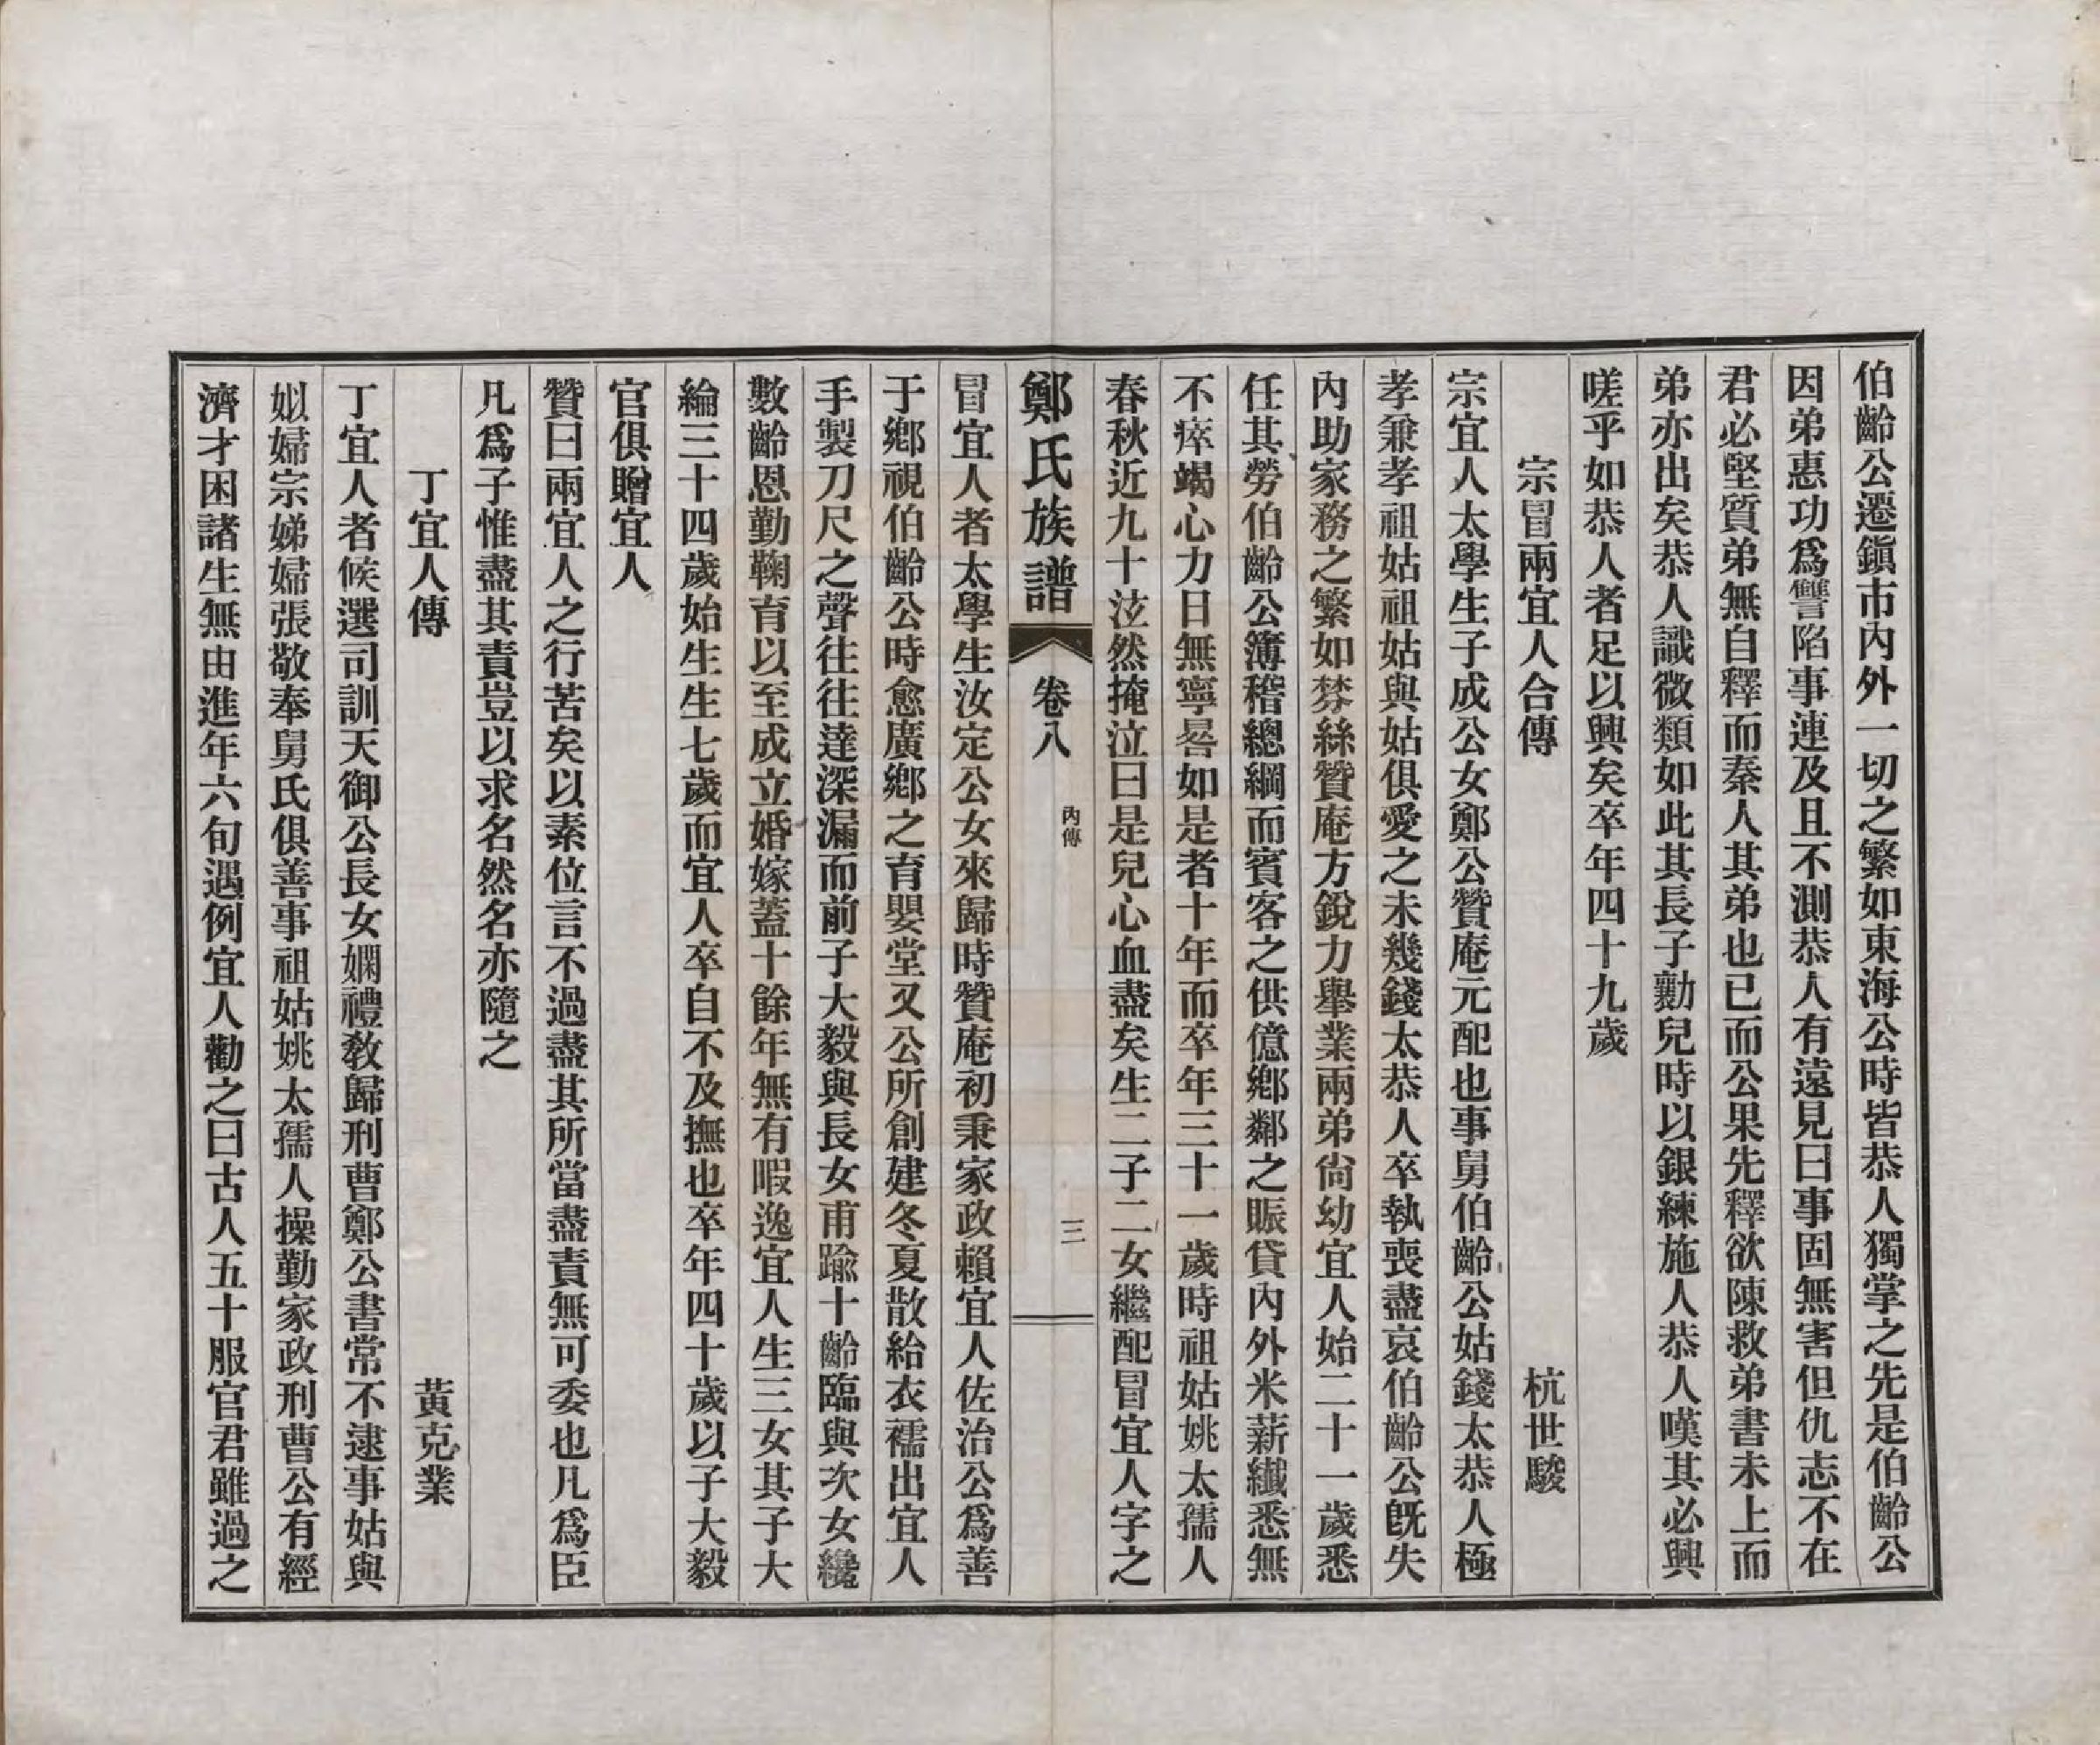 伯齡公遷鎮市內外一切之繁如東海公時皆恭人獨掌之先是伯齡公
因弟惠功爲讐陷事連及且不測恭人有遠見曰事固無害但仇志不在
君必堅質弟無自釋而秦人其弟也已而公果先釋欲陳救弟書未上而
弟亦出矣恭人識微類如此其長子勷兒時以銀練施人恭人嘆其必興
嗟乎如恭人者足以興矣卒年四十九歲
宗冒兩宜人合傳 杭世駿
宗宜人太學生子成公女鄭公贊庵元配也事舅伯齡公姑錢太恭人極
孝兼孝祖姑祖姑與姑俱愛之未幾錢太恭人卒執喪盡哀伯齡公旣失
內助家務之繁如棼絲贊庵方銳力舉業兩弟尙幼宜人始二十一歲悉
任其勞伯齡公簿稽總綱而賓客之供億鄉鄰之賑貸內外米薪纖悉無
不瘁竭心力日無寧晷如是者十年而卒年三十一歲時祖姑姚太孺人
春秋近九十泫然掩泣曰是兒心血盡矣生二子二女繼配冒宜人字之
鄭氏族譜 卷八 內傳 三
冒宜人者太學生汝定公女來歸時贊庵初秉家政賴宜人佐治公爲善
于鄉視伯齡公時愈廣鄉之育嬰堂又公所創建冬夏散給衣襦出宜人
手製刀尺之聲往往達深漏而前子大毅與長女甫踰十齡臨與次女纔
數齡恩勤鞠育以至成立婚嫁蓋十餘年無有暇逸宜人生三女其子大
綸三十四歲始生生七歲而宜人卒自不及撫也卒年四十歲以子大毅
官俱贈宜人
贊曰兩宜人之行苦矣以素位言不過盡其所當盡責無可委也凡爲臣
凡爲子惟盡其責豈以求名然名亦隨之
丁宜人傳 黃克業
丁宜人者候選司訓天御公長女嫻禮敎歸刑曹鄭公書常不逮事姑與
姒婦宗娣婦張敬奉舅氏俱善事祖姑姚太孺人操勤家政刑曹公有經
濟才困諸生無由進年六旬遇例宜人勸之曰古人五十服官君雖過之